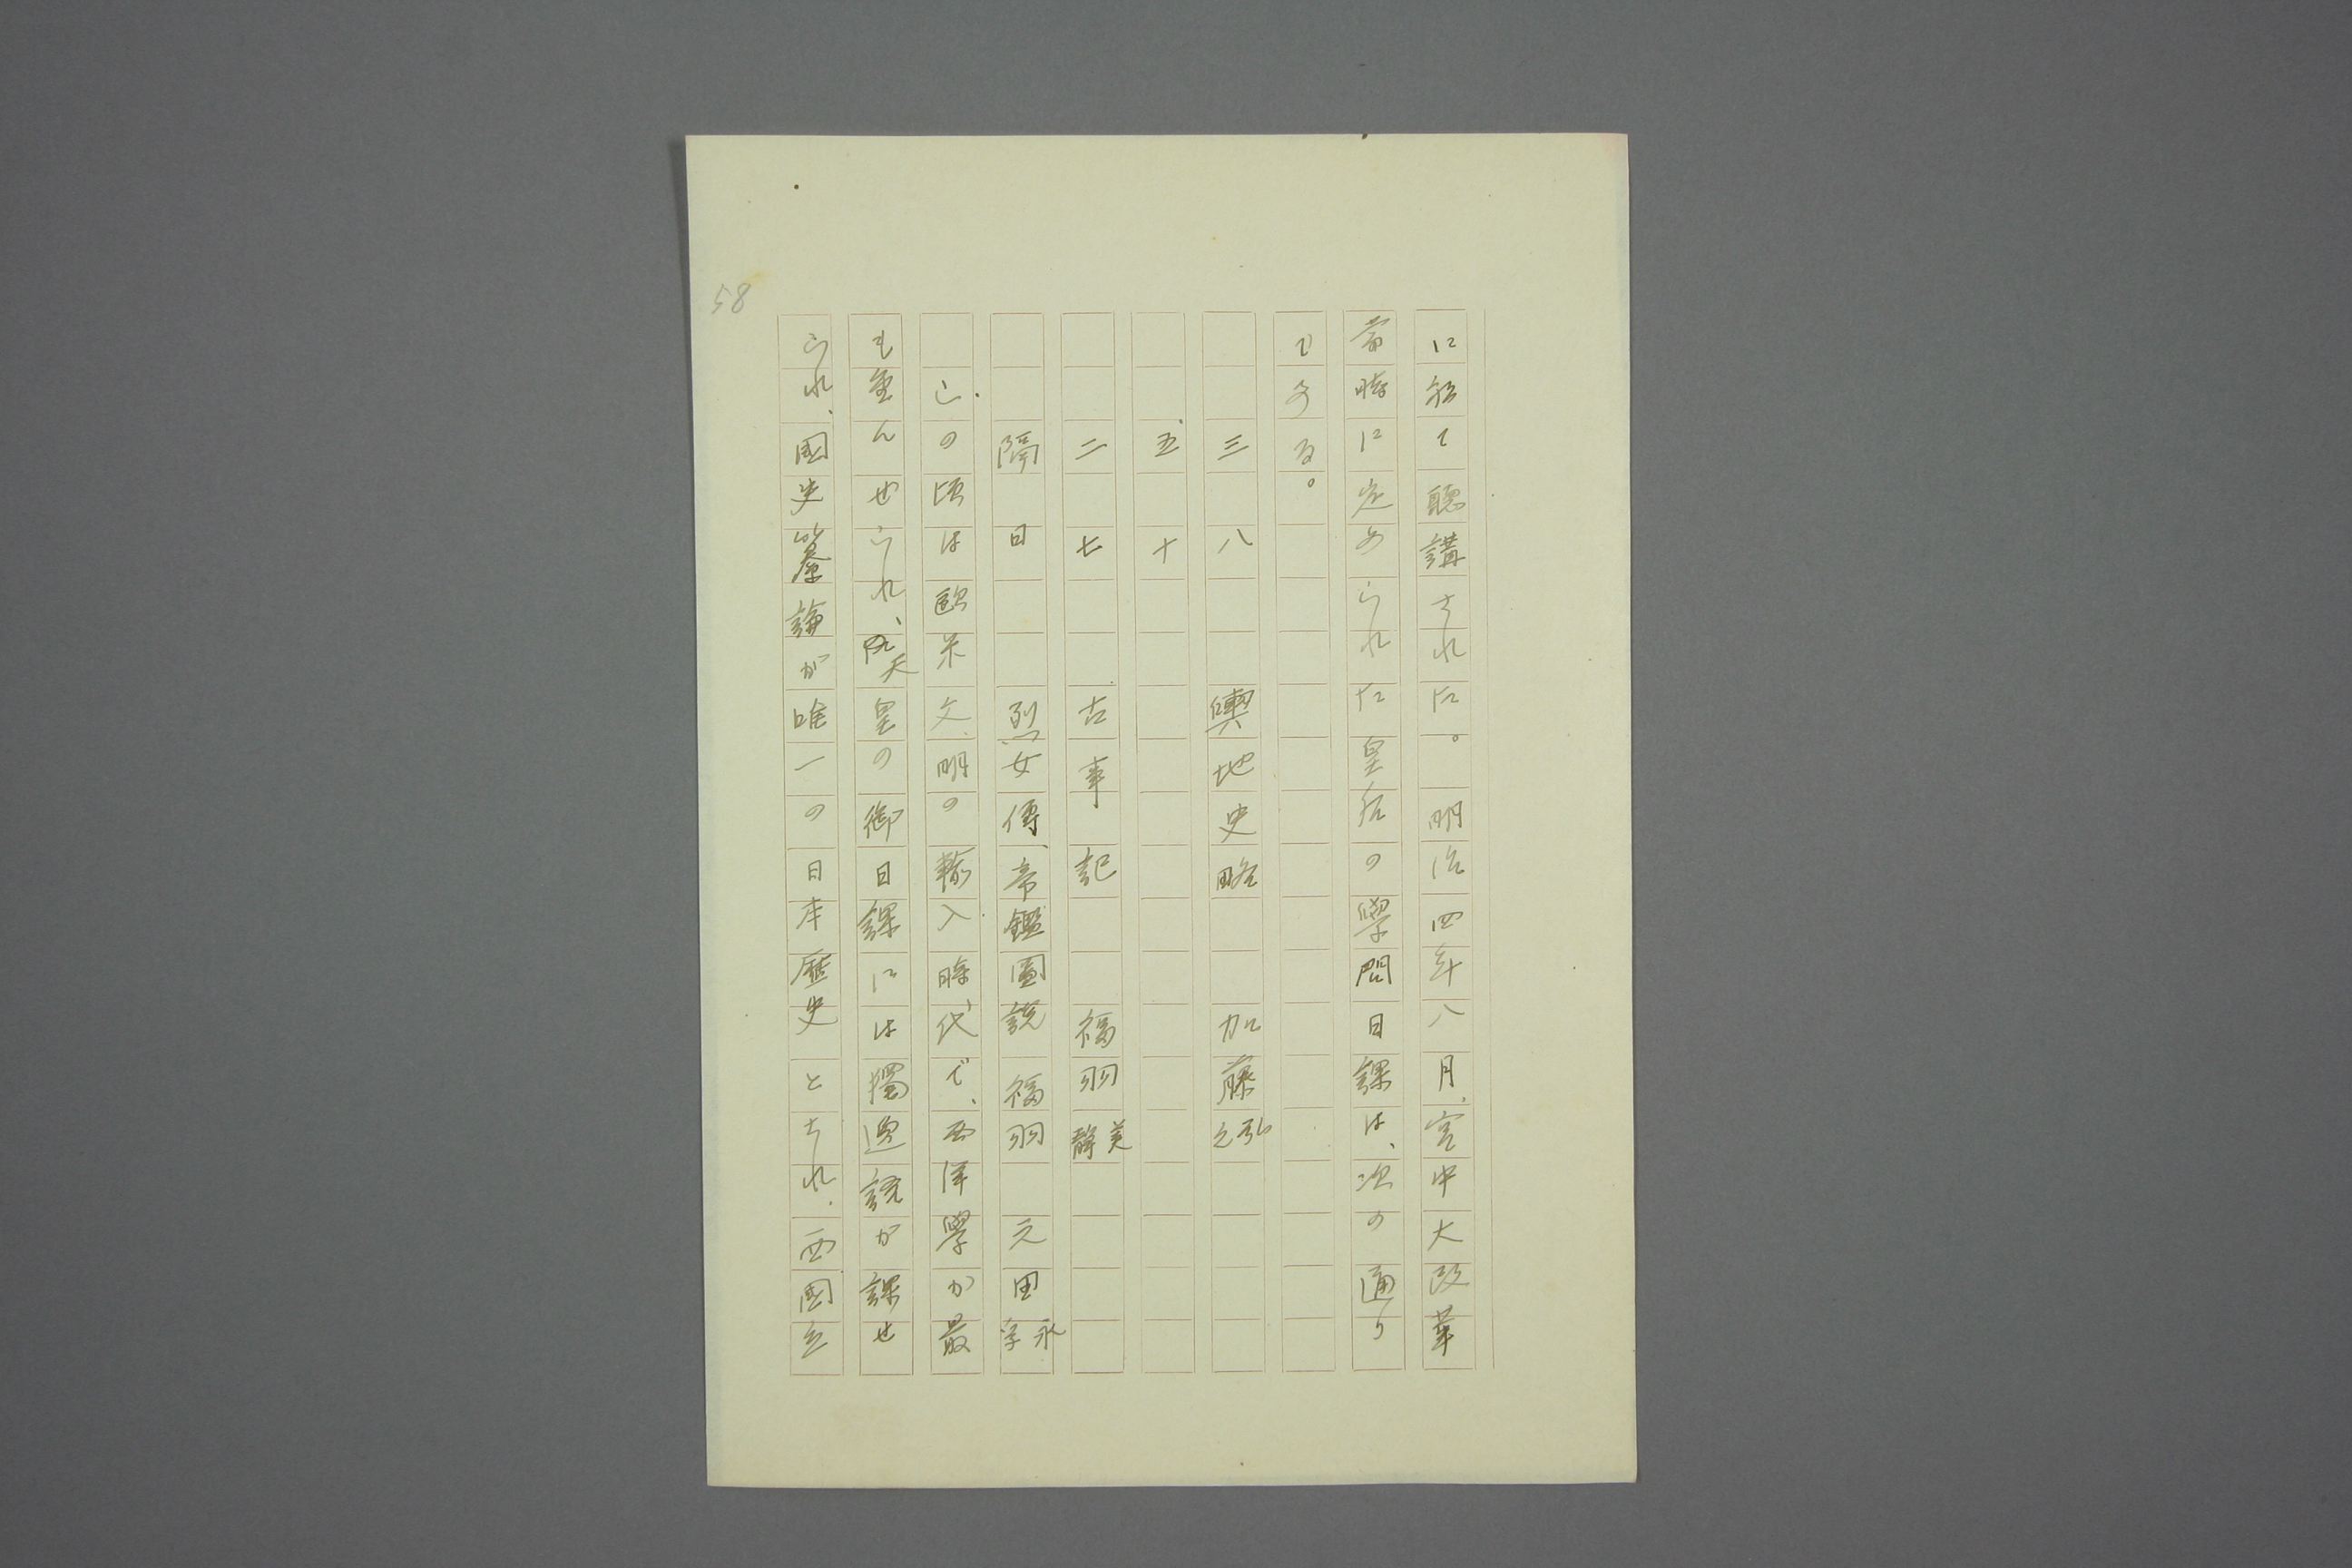 に於て聽講された。明治四年八月、宮中大改革
當時に定められた皇后の學問日課は、次の通り
である。
三八 輿地史略 加藤弘之
五十
二七 古事記 福羽美靜
隔日 烈女傳、帝鑑圖說 福羽 元田永孚
この頃は歐米文明の輸入時代で、西洋學が最
も重んぜられ、天皇の御日課には獨逸語が課せ
られ、國史纂論が唯一の日本歷史とされ、西國立
58